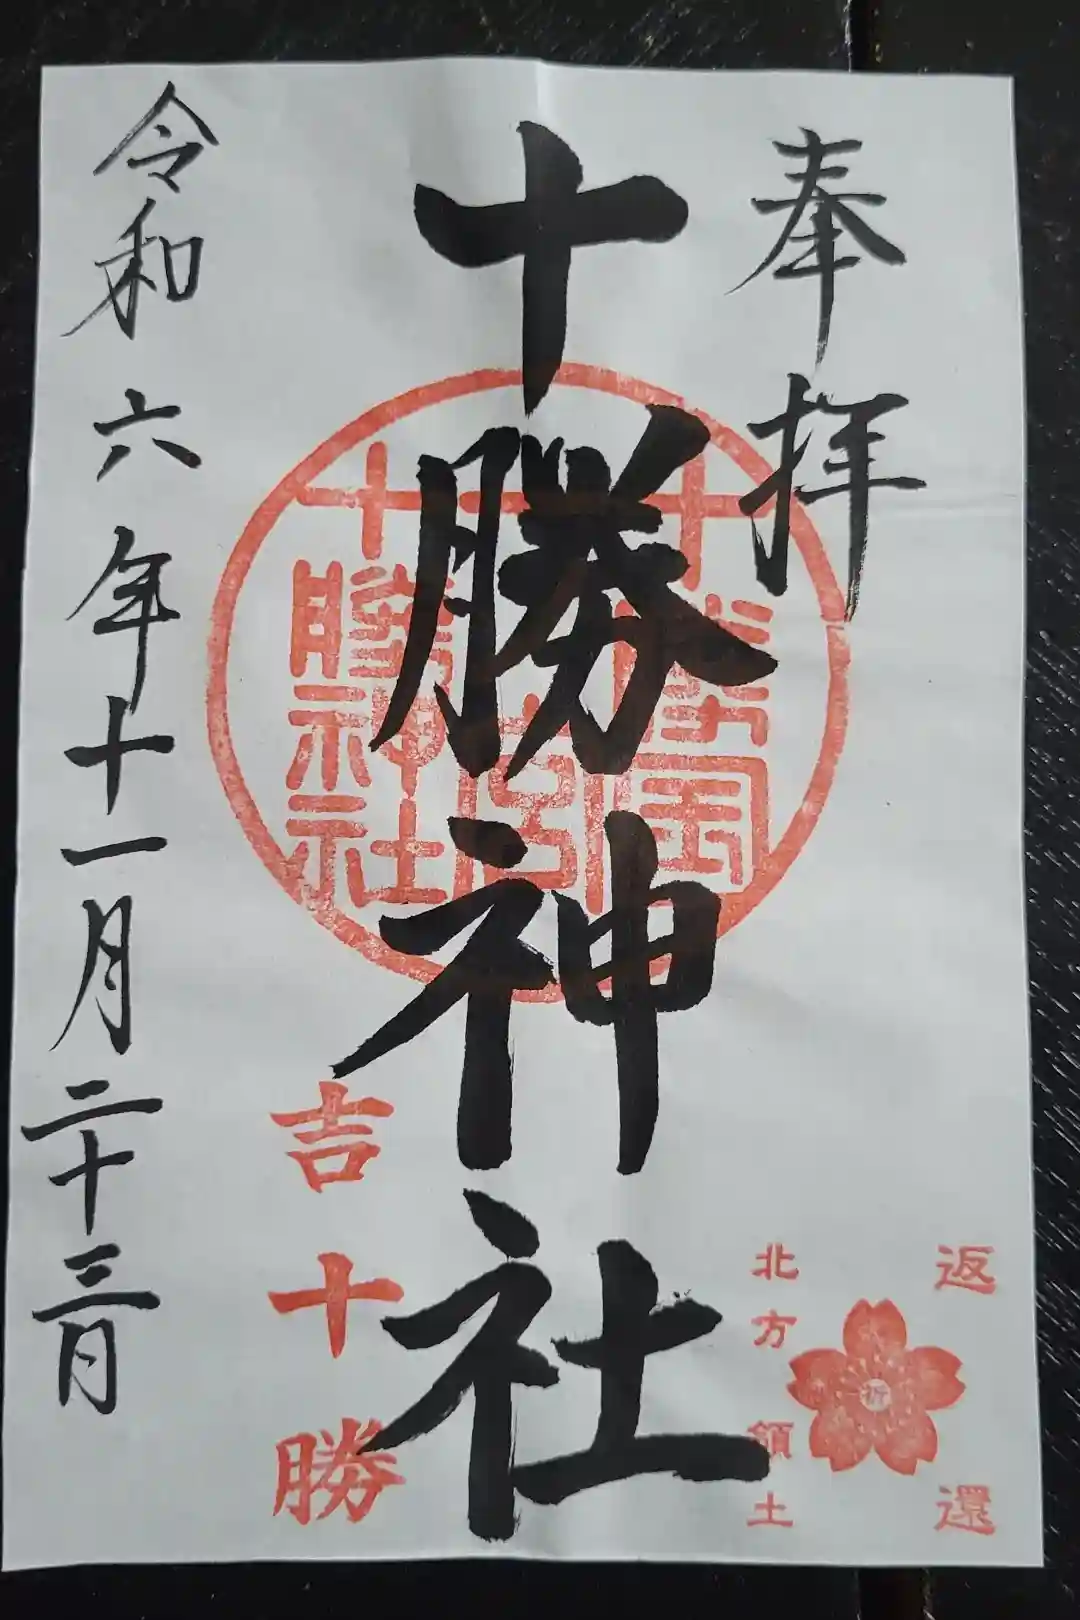 奉拝
返還
祈
北方領土
十勝神社
十勝神社
吉十勝
令和六年十一月二十三日